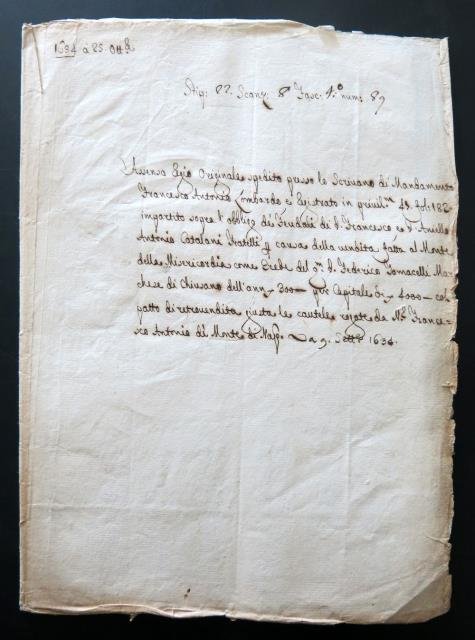 1634 à 25. Ott.e
Stip: 22. Scanz. 8.a Fasc: 4.o num: 89
Assenso Regio Originale spedito presso lo Scrivano di Mandamento
Francesco Antonio Lombardo e Registrato in privil.m fol: 182
impartito sopra l'obbligo di D. Francesco e D. Aniello
Antonio Catalani Fratelli p causa della vendita fatta al Monte
della Misericordia come Erede del q.m D. Federico Tomacelli Mar
chese di Chiusano dell'ann. 300 — p Capitale di 4000 — col
patto di retrovendita giusta le cautele rogate da N.r France=
sco Antonio di Monte di Nap. Da 9. Sett.e 1634.